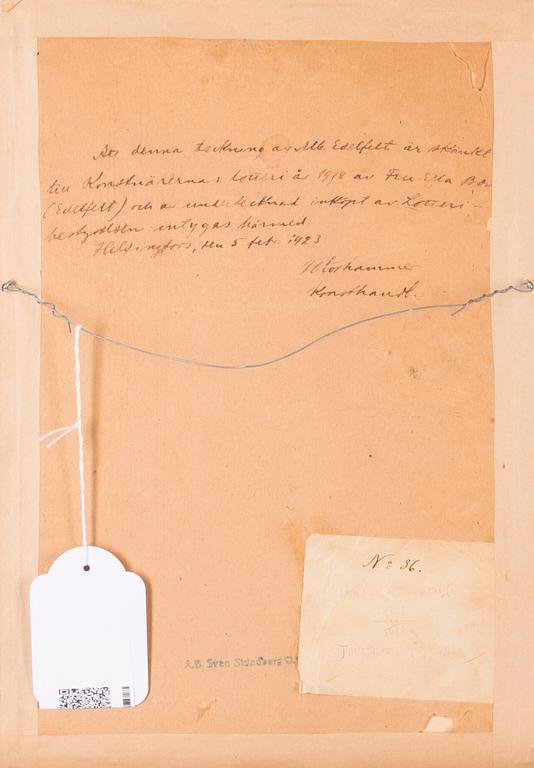 Att denna teckning av Alb. Edelfelt är skänkt
till Konstnärernas lotteri år 1918 av Fru Ella
(Edelfelt) och av undertecknad inköpt av Lotteri-
bestyrelsen intygas härmed
Helsingfors, den 5 febr. 1923
Konsthandl.
No 36.
A.B. Sven Strindberg O.Y.